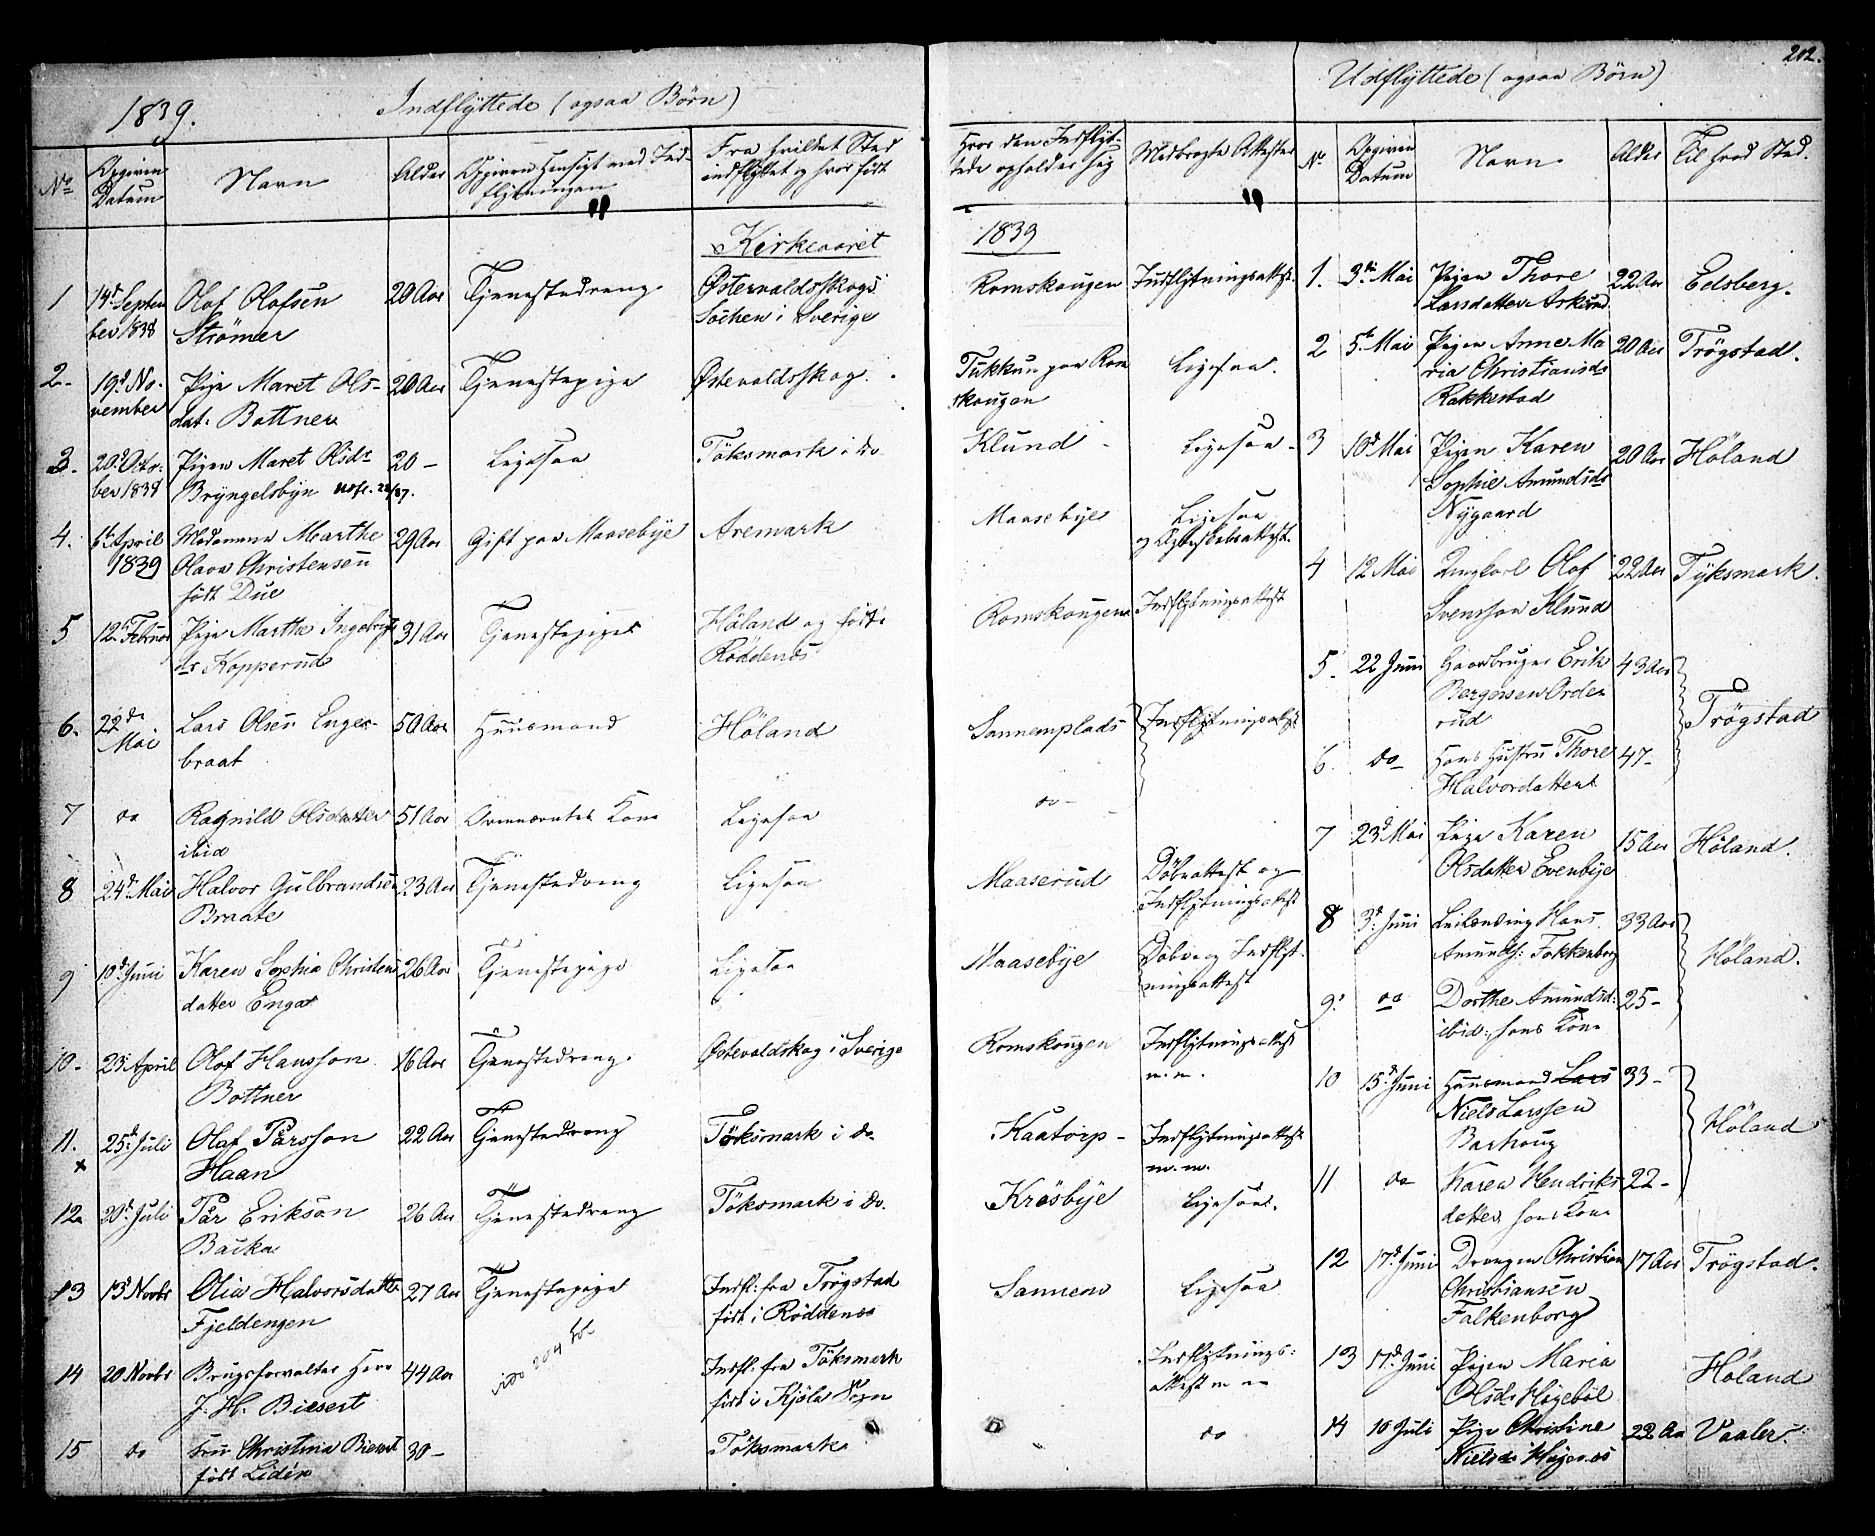 212.
1839.
Indflyttede (ogsaa Børn)
Udflyttede (ogsaa Børn)
No
Opgiven Datum
Navn
Alder
Opgiven Hensigt med Ind-
flytningen
Fra hvilket Sted
indflyttet og hvor født
Hvor den Indflyt-
tede opholder sig
Medbragte Attester
No
Opgiven Datum
Navn
Alder
Til hvad Sted.
Kirkeaaret
1839
1
14d Septem
ber 1838
Olof Olofsen
Strömer
20 Aar
Tjenestedreng
Östervaldsskogs
Sochen i Sverige
Romskougen
Indflytningsattest.
2.
19d No-
vember
Pige Maret Ols-
dat. Bottner
20 Aar
Tjenestepige
Östevaldsskog.
Tukkun paa Rom
skougen
Ligesaa.
3.
20d Octr.
ber 1838
Pigen Maret Olsdr
Bryngelsbyn
20 -
Ligesaa
Töksmark i do
Klund
Ligesaa.
4.
6t April
1839
Madamme Marthe
Olava Christensen
født Due
29 Aar
Gift paa Maasebye
Aremark
Maasebye
Ligesaa
5
12te Februar
Pige Marthe
dr Kopperud
31 Aar
Tjenestepige
Höland og født i
Röddenæs
Romskougen
Indflytningsattest
6.
22de
Mai
Lars Olsen Enge-
braat
50 Aar
Huusmand
Höland
Sannemplads
Indflytningsattest
7
do
Ragnild Olsdatter
ibid
51 Aar
Ovennævntes Kone
Ligesaa
do -
8
24d Mai
Halvor Gulbrandsen
Braate
23 Aar
Tjenestedreng
Ligesaa
Maaserud
Döbeattest og
Indflytningsattest
9
10d Juni
Karen Sophia Christens
datter Enger
26 Aar
Tjenestepige
Ligesaa
Maasebye
Döbe og Indflyt-
ningsattest
10.
23d April
Olof Hansson
Bottner
16 Aar
Tjenestedreng.
Östevaldskog i Sverige
Romskougen
Indflytningsattest
m. m.
11.
x
25d Juli
Olof Pärsson
Haan
22 Aar
Tjenestedreng
Töksmark i do.
Kaatorp -
Indflytningsattest
m. m.
12.
20d Juli
Pär Erikson
Backa
26 Aar
Tjenestedreng
Töksmark i do.
Kräsbye
Ligesaa.
13
13d Novbr
Olia Halvorsdatter
Fjeldengen
27 Aar
Tjenestepige
Indfl. fra Trögstad
født i Röddenæs
Sannem
Ligesaa
14
20 Novbr
Brugsforvalter Herr
J. H. Biesert
44 Aar
Indfl. fra Töksmark
født i Kjöla Sogn
Indflytnings-
attest m m
15
do
Fru Christina Biesert
født Lidén
30 -
Töksmark
do
1.
3die Mai
Pigen Thore
Larsdatter Askerud
22 Aar
Edsberg.
2
5te Mai
Pigen Anne Ma
ria Christiansdr
Rakkestad
20 Aar
Trögstad.
3
10d Mai
Pigen Karen
Sophie Amundsdr
Nygaard
20 Aar
Höland
4
12 Mai
Ungkarl Olof
Svensson Klund
22 Aar
Tyksmark.
5.
22 Juni
Gaardbruger Erik
Børgersen Orde
rud
43 Aar
Trögstad
6.
do
Hans Hustru Thore
Halvordatter
47 -
7
23d Mai
Pige Karen
Olsdatter Evenbye
15 Aar
Höland.
8
3d Juni
Leilænding Hans
Amunds. Fokkenborg
33 Aar
Höland.
9.
do
Dorthe Amundsd:
ibid:, hans Kone
25 -
10
15d Juni
Huusmand Lars
Niels Larssen
Barhoug
33 -
Höland
11
do
Karen Hendriks
datter hans Kone
22 -
12
17d Juni
Drengen Christian
Christiansen
Falkenborg
17 Aar
Trögstad.
13
17d Juni
Pigen Maria
Olsdr Högeböl
Höland
14
10 Juli
Pige Christine
22 Aar
Vaaler.